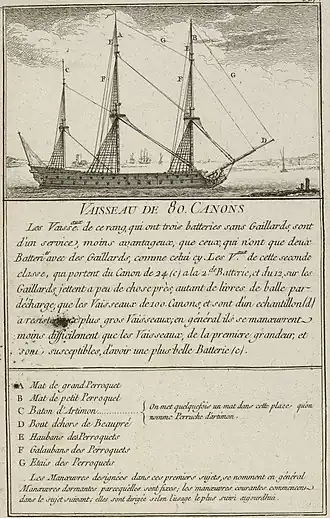 A
E
B
F
C
F
G
G
D
VAISSEAU DE 80. CANONS
Les Vaisse.aux de ce rang, qui ont trois batteries sans Gaillards, sont
d'un service, moins avantageux, que ceux, qui n'ont que deux
Batteri.es avec des Gaillards, comme celui cy. Les V.aux de cette seconde
classe, qui portent du Canon de 24 (c) a la 2.de Batterie, et du 12, sur les
Gaillards, jettent a peu de chose près autant de livres, de balle par
decharge, que les Vaisseaux de 100. Canons, et sont d'un echantillon (d)
a résister aux plus gros Vaisseaux; en général ils se manœuvrent
moins difficilement que les Vaisseaux, de la premiere grandeur, et
sont susceptibles, d'avoir une plus belle Batterie (e).
A Mat de grand Perroquet
B Mat de petit Perroquet
C Baton d'Artimon
D Bout dehors de Beaupré
E Haubans des Perroquets
F Galaubans des Perroquets
G Etais des Perroquets
On met quelquefois un mat dans cette place, qu'on
nomme Perruche d'artimon.
Les Manœuvres designées dans ces premiers sujets, se nomment en général
Manœuvres dormantes parcequ'elles sont fixes; les manœuvres courantes commencent
dans le sujet suivant; elles sont dirigée selon l'usage le plus suivi aujourdhui.